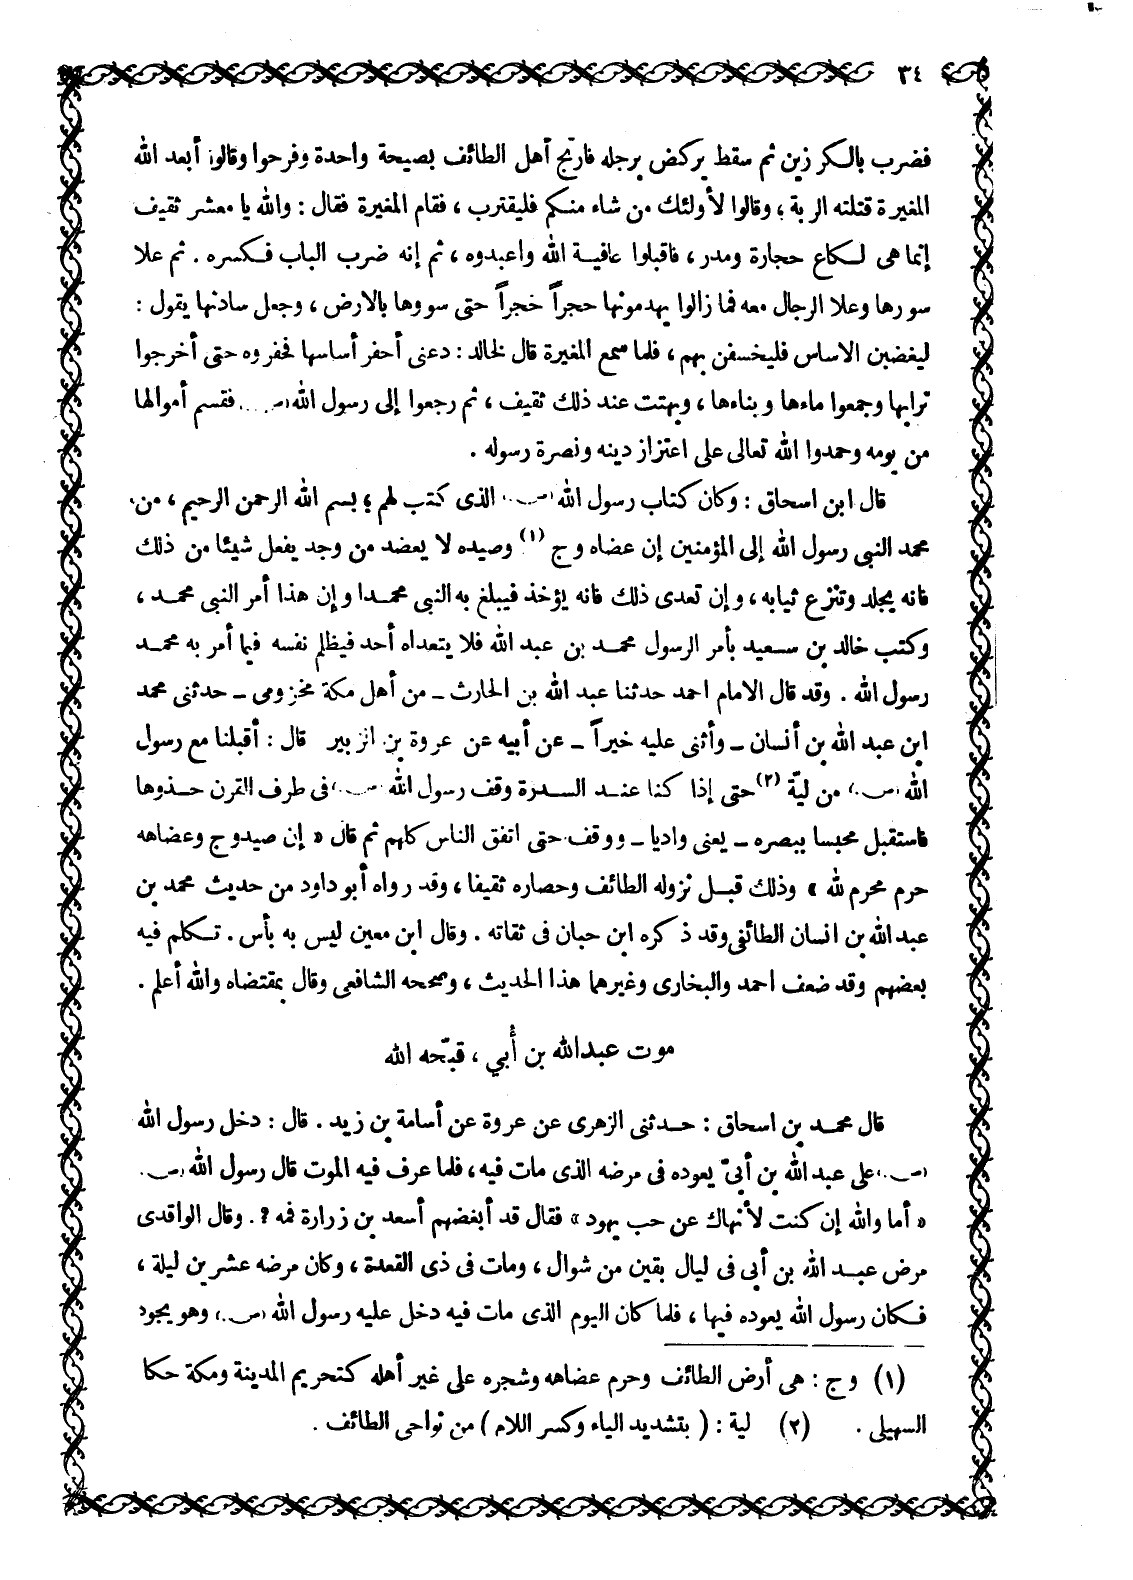 ٣٤
فضرب بالكرزين ثم سقط يركض برجله فارتج أهل الطائف بصيحة واحدة وفرحوا وقالوا أبعد الله
المغيرة قتلته الربة ؛ وقالوا لأولئك من شاء منكم فليقترب ، فقام المغيرة فقال : والله يا معشر ثقيف
إنما هى لكاع حجارة ومدر ، فاقبلوا عافية الله واعبدوه ، ثم إنه ضرب الباب فكسره . ثم علا
سورها وعلا الرجال معه فما زالوا يهدمونها حجراً خجراً حتى سووها بالارض ، وجعل سادنها يقول :
ليغضبن الاساس فليخسفن بهم ، فلما سمع المغيرة قال لخالد : دعنى أحفر أساسها فحفروه حتى أخرجوا
ترابها وجمعوا ماءها وبناءها ، وبهتت عند ذلك ثقيف ، ثم رجعوا إلى رسول الله (ص) فقسم أموالها
من يومه وحمدوا الله تعالى على اعتزاز دينه ونصرة رسوله .
قال ابن اسحاق : وكان كتاب رسول الله (ص) الذى كتب لهم ؛ بسم الله الرحمن الرحيم ، من
محمد النبى رسول الله إلى المؤمنين إن عضاه وج (١) وصيده لا يعضد من وجد يفعل شيئا من ذلك
فانه يجلد وتنزع ثيابه ، وإن تعدى ذلك فانه يؤخذ فيبلغ به النبى محمدا وإن هذا أمر النبى محمد ،
وكتب خالد بن سعيد بأمر الرسول محمد بن عبد الله فلا يتعداه أحد فيظلم نفسه فيما أمر به محمد
رسول الله . وقد قال الامام احمد حدثنا عبد الله بن الحارث ــ من أهل مكة مخزومى ــ حدثنى محمد
ابن عبد الله بن أنسان ــ وأثنى عليه خيراً ــ عن أبيه عن عروة بن الزبير قال : أقبلنا مع رسول
الله (ص) من ليّة (٢) حتى إذا كنا عند السدرة وقف رسول الله (ص) فى طرف القرن حذوها
فاستقبل محبسا ببصره ــ يعنى واديا ــ ووقف حتى اتفق الناس كلهم ثم قال « إن صيدوج وعضاهه
حرم محرم لله » وذلك قبل نزوله الطائف وحصاره ثقيفا ، وقد رواه أبو داود من حديث محمد بن
عبد الله بن انسان الطائفى وقد ذكره ابن حبان فى ثقاته . وقال ابن معين ليس به بأس . تكلم فيه
بعضهم وقد ضعف احمد والبخارى وغيرهما هذا الحديث ، وصححه الشافعى وقال بمقتضاه والله أعلم .
موت عبدالله بن أُبي ، قبّحه الله
قال محمد بن اسحاق : حدثنى الزهرى عن عروة عن أسامة بن زيد . قال : دخل رسول الله
(ص) على عبد الله بن أبىّ يعوده فى مرضه الذى مات فيه ، فلما عرف فيه الموت قال رسول الله (ص)
« أما والله إن كنت لأنهاك عن حب يهود » فقال قد أبغضهم أسعد بن زرارة فمه ؟ . وقال الواقدى
مرض عبد الله بن أبى فى ليال بقين من شوال ، ومات فى ذى القعدة ، وكان مرضه عشرين ليلة ،
فكان رسول الله يعوده فيها ، فلما كان اليوم الذى مات فيه دخل عليه رسول الله (ص) وهو يجود
(١) وج : هى أرض الطائف وحرم عضاهه وشجره على غير أهله كتحريم المدينة ومكة حكا
السهيلى . (٢) لية : ( بتشديد الياء وكسر اللام ) من نواحى الطائف .